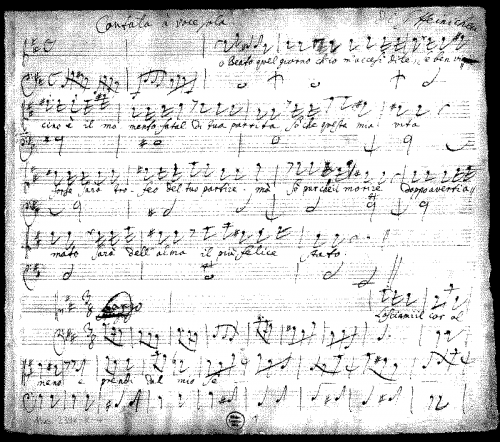 Cantata à voce sola Heinichen
o Beato quel giorno ch'io m'accesi di te, e ben vi
cino è il mo mento fatal di tua partita so che questa mia vita
forse sarà tro feo del tuo partire mà so pur che il morire doppo averti a
mato sarà dell'alma il più felice stato
Largo
Lasciami il cor al
meno e prendi dal mio se